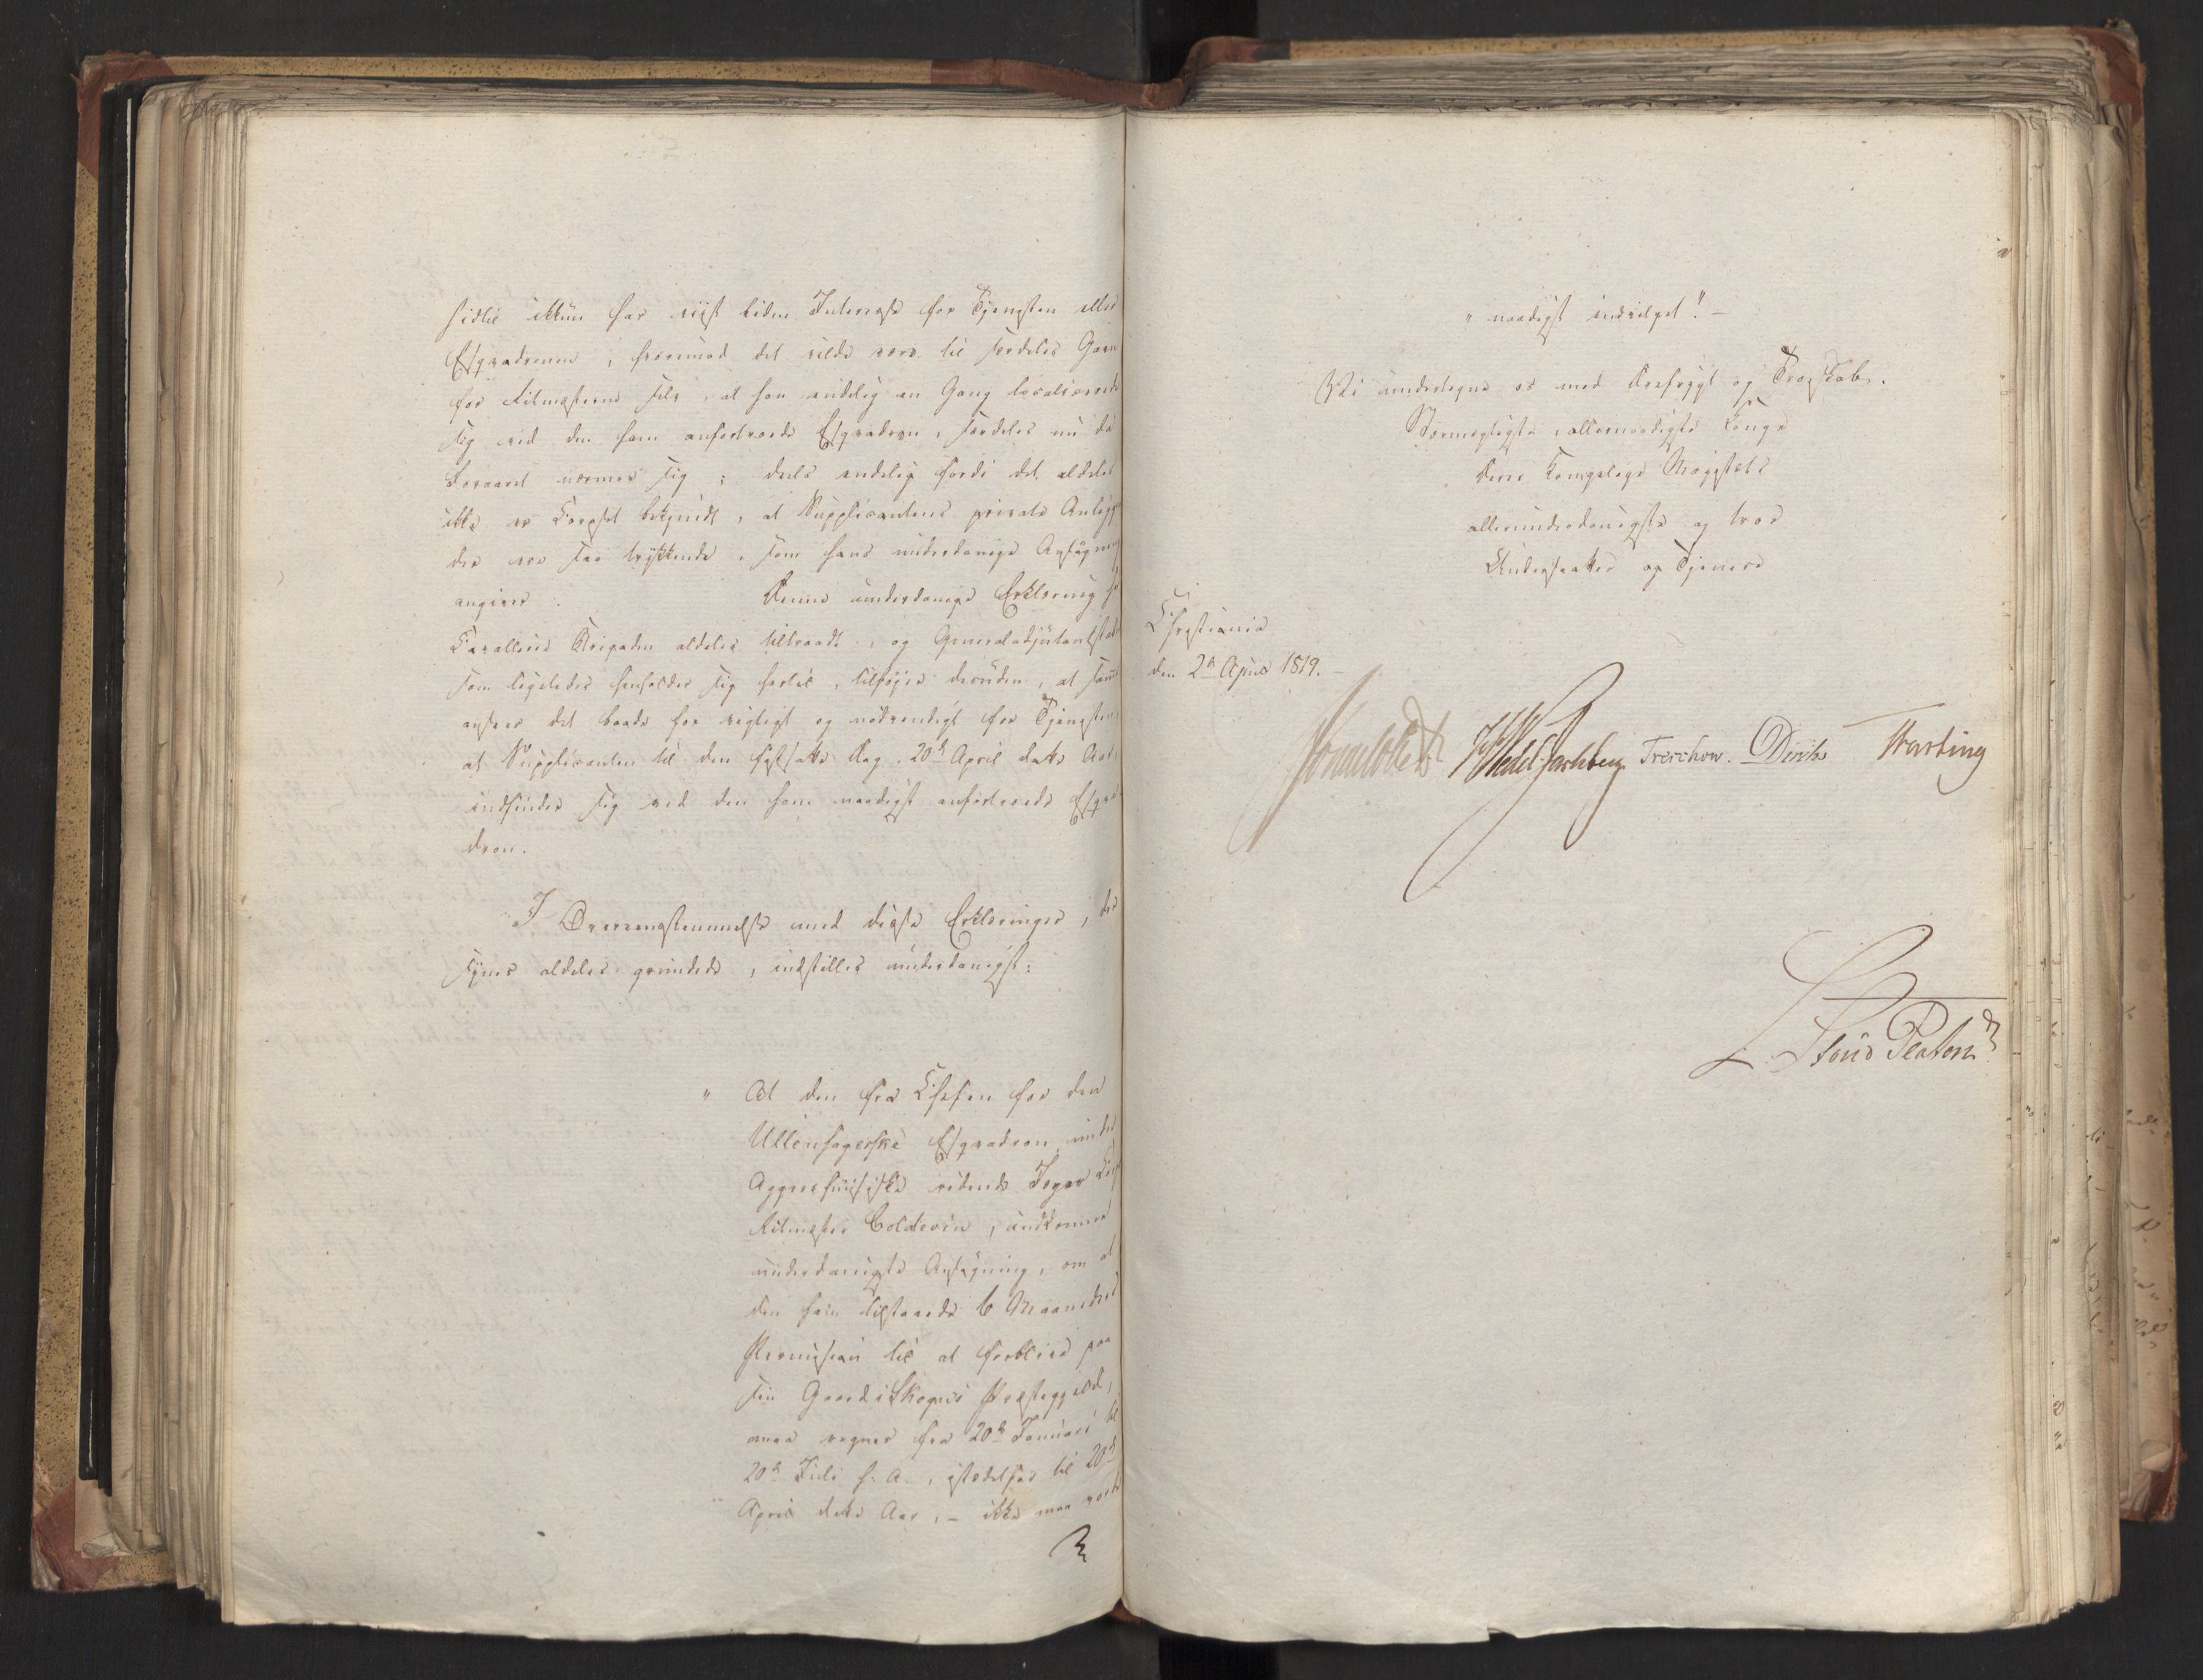 hidtil ikkun har viist liden Interesse for Tjenesten eller
Esqvadronen; hvorimod det vilde være til særdeles Gavn
for Ritmesteren selv, at han endelig en Gang localiserede
sig ved den ham anfortroede Esqvadron, særdeles nu da
Foraaret nærmer sig; deels endelig fordi det aldeles
ikke er Corpset bekjendt, at Supplicantens private Anligg
der ere saa trykkende, som hans underdanige Ansøgning
angiver. Denne underdanige Erklæring
Cavallerie Brigaden aldeles tiltraadt, og Generaladjutantstaben
som ligeledes henholder sig hertil, tilføjer desuden, at samme
ansees det baade for vigtigt og nødvendigt for Tjenesten
at Supplicanten til den fastsatte Dag, 20de April dette Aar
indfinder sig ved den ham naadigst anfortroede Esqva-
dron.
I Overeensstemmelse med disse Erklæringer, der
synes aldeles grundede, indstilles underdanigst:
" At den fra Chefen for den
Ullensagerske Esqvadron under
Aggershuusiske ridende Jæger Corps
Ritmester Coldevin, indkomne
underdanigste Ansøgning, om at
den ham tilstaaede 6 Maaneders
Permission til at forblive paa
sin Gaard i Skogns Præstegjeld,
maa regnes fra 20de Januari til
20de Juli h: A., istedetfor til 20de
April dette Aar, – ikke maa vorde
" naadigst indvilget!" –
Vi undertegne os med Ærefrygt og Troskab.
Stormægtigste, allernaadigste Konge
Deres Kongelige Majestæts
allerunderdanigste og troe
Undersaatter og Tjenere
Christiania
den 2de April 1819. –
Sommerhielm HWedel Jarlsberg Treschow. Diriks Fasting
L. Stoud Platou